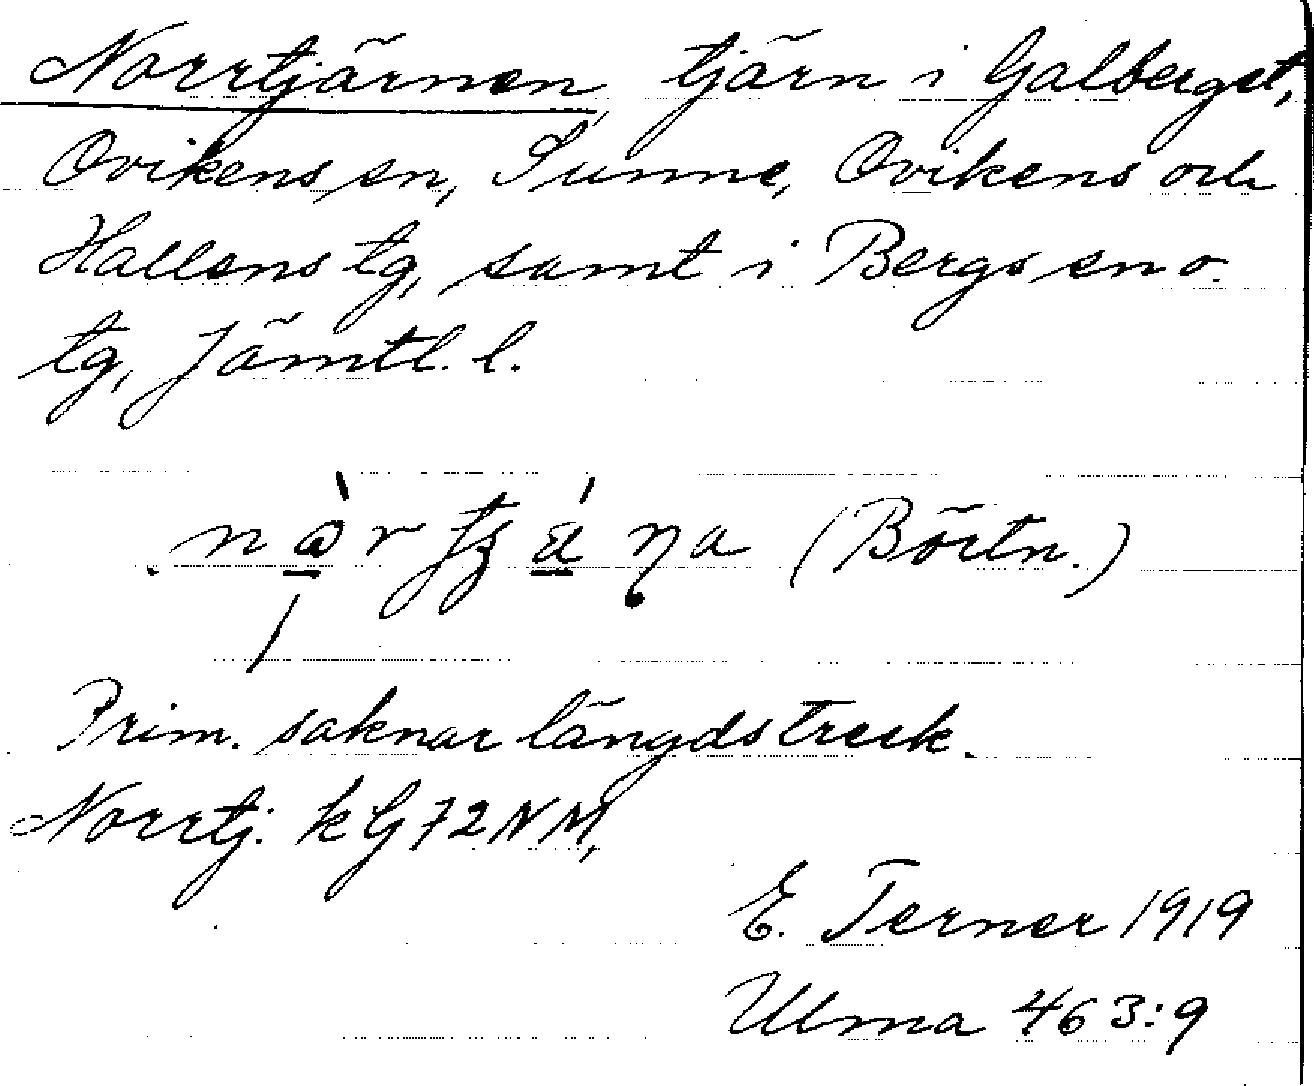 Norrtjärnen, tjärn i Galberget,
Ovikens sn, Sunne, Ovikens och
Hallens tg, samt i Bergs sn o.
tg, Jämtl. l.
(Börtn.)
Prim. saknar längdstreck.
Norrtj. kG72NM,
E. Terner 1919
Ulma 463:9